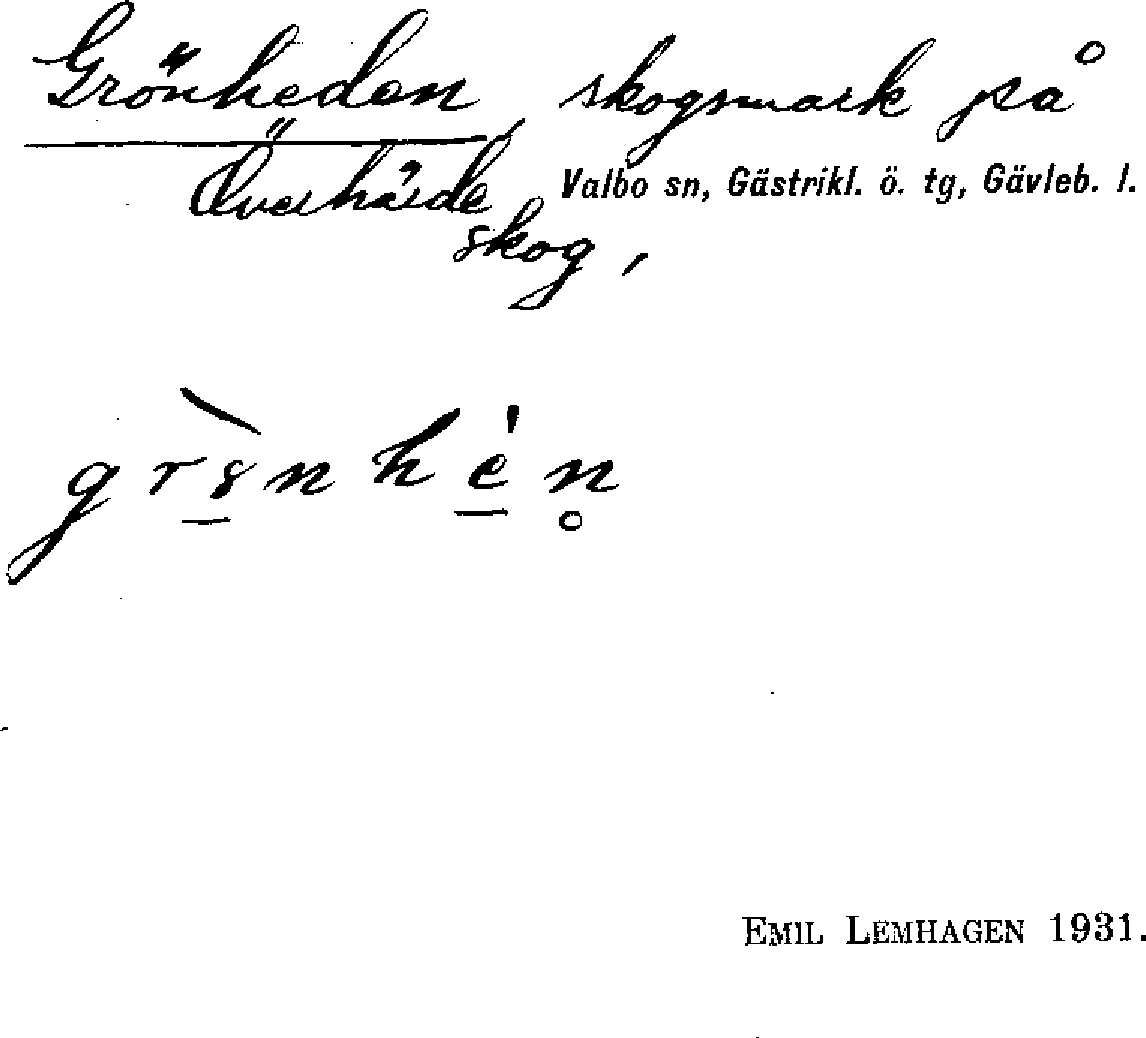 Grönheden, skogsmark på
Överhärde
Valbo sn, Gästrikl. ö. tg, Gävleb. l.
skog,
EMIL LEMHAGEN 1931.